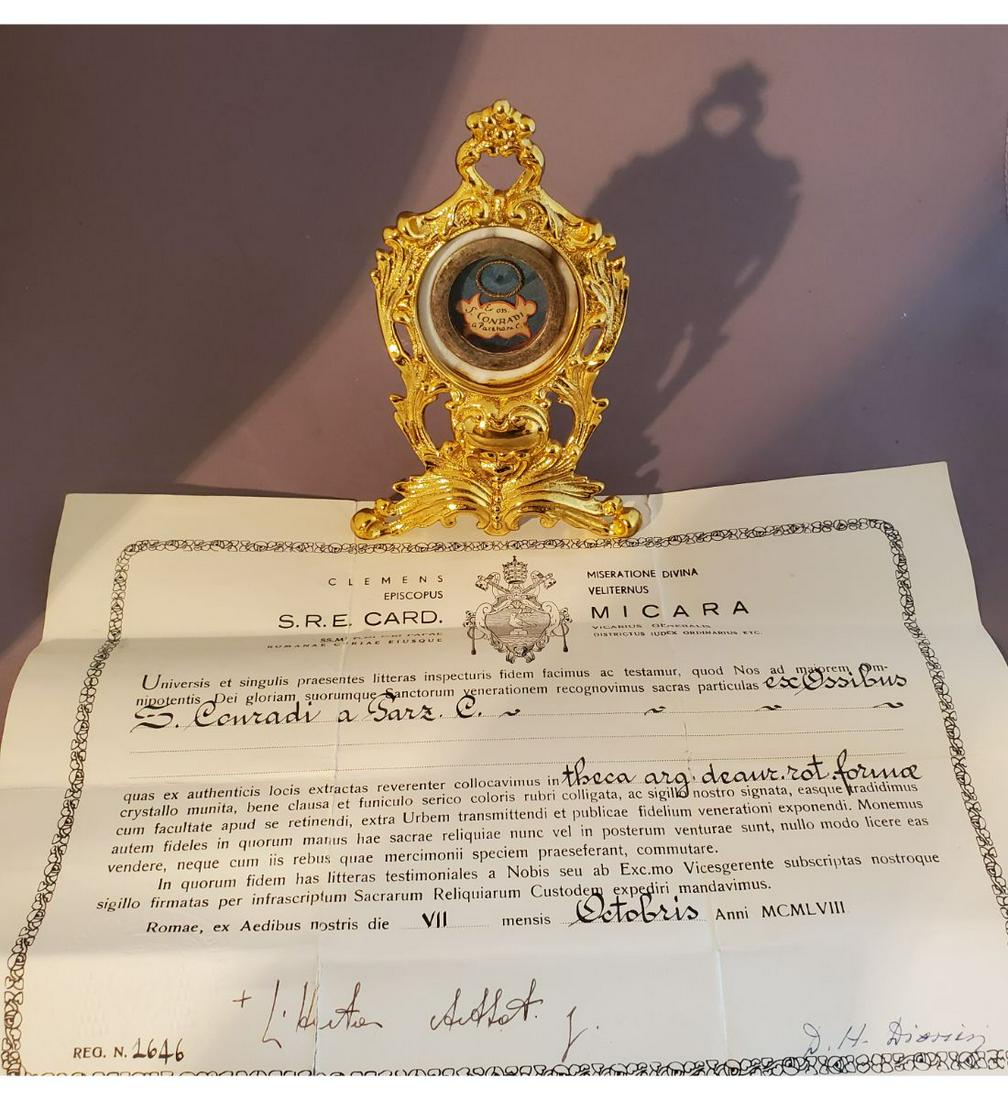 Ex oss.
S. CONRADI
a Parzham C.
CLEMENS
EPISCOPUS
S.R.E. CARD.
MISERATIONE DIVINA
VELITERNUS
MICARA
ROMANAE CURIAE EIUSQUE
VICARIUS GENERALIS
DISTRICTUS IUDEX ORDINARIUS ETC.
Universis et singulis praesentes litteras inspecturis fidem facimus ac testamur, quod Nos ad maiorem Om-
nipotentis Dei gloriam suorumque Sanctorum venerationem recognovimus sacras particulas ex Ossibus
S. Conradi a Parz. C.
quas ex authenticis locis extractas reverenter collocavimus in theca arg. deaur. rot. formæ
crystallo munita, bene clausa et funiculo serico coloris rubri colligata, ac sigillo nostro signata, easque tradidimus
cum facultate apud se retinendi, extra Urbem transmittendi et publicae fidelium venerationi exponendi. Monemus
autem fideles in quorum manus hae sacrae reliquiae nunc vel in posterum venturae sunt, nullo modo licere eas
vendere, neque cum iis rebus quae mercimonii speciem praeseferant, commutare.
In quorum fidem has litteras testimoniales a Nobis seu ab Exc.mo Vicesgerente subscriptas nostroque
sigillo firmatas per infrascriptum Sacrarum Reliquiarum Custodem expediri mandavimus.
Romae, ex Aedibus nostris die VII mensis Octobris Anni MCMLVIII
REG. N. 1646
D. H.